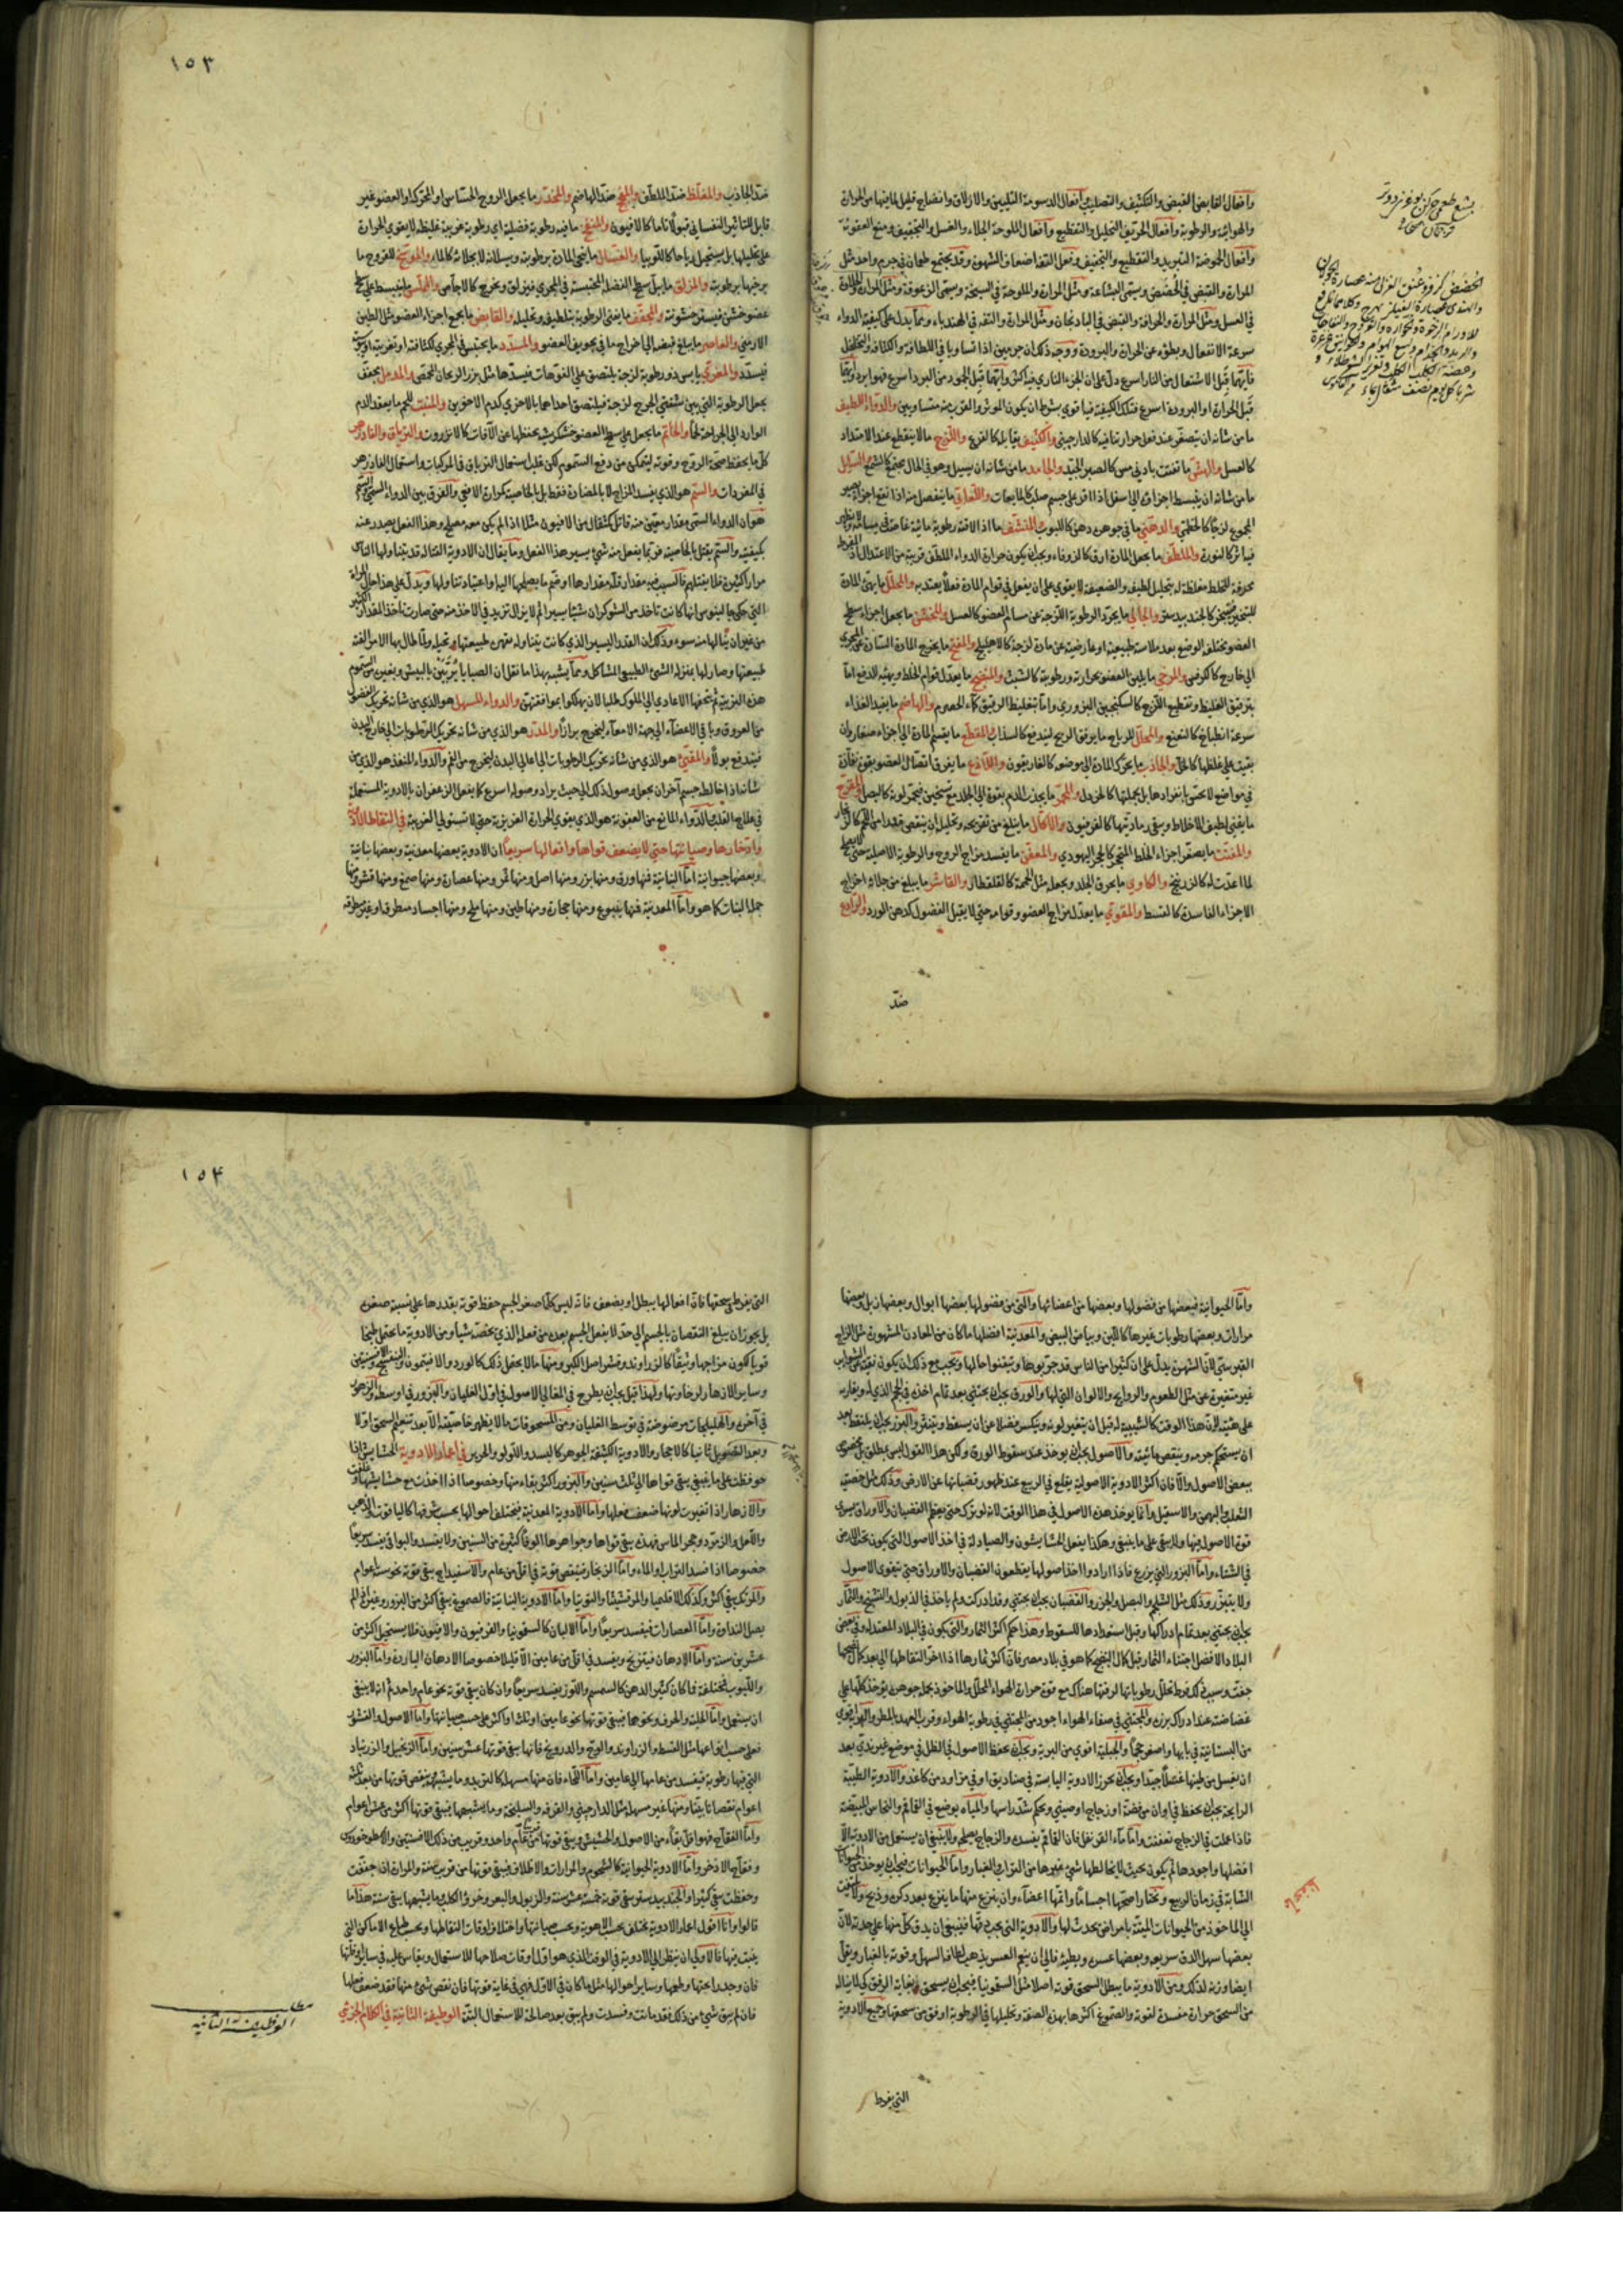 وأفعال القابض القبض والتكثيف والتصليب وأفعال الدسومة التليين والازلاق وانضاج قليل لما فيها من الحرارة
والهوائية والرطوبة وأفعال الحريف التحليل والتقطيع وأفعال الملوحة الجلاء والغسل والتجفيف ومنع العفونة
وأفعال الحموضة التبريد والتقطيع والتجفيف وفعل التفه اضعاف الشهوة وقد يجتمع طعمان في جرم واحد مثل
المرارة والقبض في الحضض ويسمى البشاعة ومثل المرارة والملوحة في السبخة ويسمى الزعوقة ومثل المرارة والحلاوة
في العسل ومثل المرارة والحرافة والقبض في الباذنجان ومثل المرارة والتفه في الهندباء ومما يدل على كيفية الدواء
سرعة الانفعال وبطؤه عن الحرارة والبرودة ووجه ذلك ان جرمين اذا تساويا في اللطافة والكثافة والتخلخل
فأيهما قبل الاشتعال من النار اسرع دل على ان الجزء الناري فيه اكثر وايهما قبل الجمود من البرد اسرع فهو ابرد وأيهما
قبل الحرارة او البرودة اسرع فتلك الكيفية فيه اقوى بشرط ان يكون المؤثر والقرب منه متساويين والدواء اللطيف
ما من شانه ان يتصغر عند فعل حرارتنا فيه كالدارچيني والكثيف يقابله كالقرع واللزج ما لا ينقطع عند الامتداد
كالعسل والهش ما تفتت بادنى مس كالصبر الجيد والجامد ما من شانه ان يسيل وهو في الحال مجتمع كالشمع السائل
ما من شانه ان ينبسط اجزاؤه الى اسفل اذا اقر على جسم صلب كالمايعات واللعابي ما ينفصل منه اذا نقع اجزاء يصير
المجموع لزجا كالخطمي والدهني ما في جوهره دهن كاللبوب المنشف ما اذا لاقته رطوبة مائية غاصت في مسامه
كالنورة والملطف ما يجعل المادة ارق كالزوفاء ويجب ان يكون حرارة الدواء الملطف قريبة من الاعتدال
محرقة للخلط مغلظة له بتحليل لطيفه والضعيفة لا يقوى على ان يفعل في قوام المادة فعلا يعتد به والمحلل ما يهيئ المادة
للتبخير كالجندبيدستر والجالي ما يجرد الرطوبة اللزجة عن مسام العضو كالعسل والمخشن ما يجعل اجزاء سطح
العضو مختلفة الوضع بعد ملاسة طبيعية او عارضية عن مادة لزجة كالاهليلج والمفتح ما يخرج المادة السادة عن المجرى
الى خارج كالكرفس والمرخي ما يلين العضو بحرارته ورطوبته كالشبث والمنضج ما يعدل قوام الخلط ويهيئه للدفع اما
بترقيق الغليظ وتقطيع اللزج كالسكنجبين البزوري واما بتغليظ الرقيق كماء الحصرم والهاضم ما يفيد الغذاء
سرعة انطباخ كالنعنع والمحلل للرياح ما يرقق الريح ليندفع كالسذاب المقطع ما يقسم المادة الى اجزاء صغار وان
بقيت على غلظها كالخل والجاذب ما يحرك المادة الى موضعه كالغاريقون واللاذع ما يفرق اتصال العضو بقوة نفاذة
في مواضع لا يحس بانفرادها بل بجملتها كالخردل والمحمر ما يجذب الدم بقوة الى الجلد مع تسخين فيحمر لونه كالبصل المقرح
ما يفني لطيف الاخلاط ويبقي رماديتها كالفرفيون والاكال ما يبلغ من تفريحه وتحليله ان ينقص قدرا من اللحم كالزنجار
والمفتت ما يصغر اجزاء الخلط المتحجر كالحجر اليهودي والمعفن ما يفسد مزاج الروح والرطوبة الاصلية حتى لا يصلح
لما اعدت له كالزرنيخ والكاوي ما يحرق الجلد ويجعله مثل الحممة كالقلقطار والقاشر ما يبلغ من جلائه اخراج
الاجزاء الفاسدة كالقسط والمقوي ما يعدل مزاج العضو وقوامه حتى لا يقبل الفضول كدهن الورد والرادع
ضد
١٥٣
ضد الجاذب والمغلظ ضد الملطف والمفجج ضد الهاضم والمخدر ما يجعل الروح الحساس او المحرك او العضو غير
قابل للتاثير النفساني قبولا تاما كالافيون والمنفخ ما فيه رطوبة فضلية اي رطوبة غريبة غليظة لا يقوى الحرارة
على تحليلها بل يستحيل رياحا كاللوبيا والغسال ما ينحي المادة برطوبته وبسيلانه لا بجلائه كالماء والموسخ للقروح ما
يرخيها برطوبته والمزلق ما يبل سطح الفضلة المحتبسة في المجرى فيزلق ويخرج كالاجاص والمملس ما ينبسط على سطح
عضو خشن فيستر خشونته والمجفف ما يفني الرطوبة بتلطيفه وتحليله والقابض ما يجمع اجزاء العضو مثل الطين
الارمني والعاصر ما يبلغ قبضه الى اخراج ما في تجويف العضو والمسدد ما يحتبس في المجرى لكثافته او تغريته او يبسه
فيسدد والمغري يابس ذو رطوبة لزجة يلتصق على الفوهات فيسدها مثل بزر الريحان المحمص والمدمل يجفف
يجعل الرطوبة التي بين شفتي الجرح لزجة فيلتصق احداهما بالاخرى كدم الاخوين والمنبت للحم ما يعقد الدم
الوارد الى الجراحة لحما والخاتم ما يجعل على سطح العضو خشكريشة يحفظها عن الآفات كالانزروت والترياق والفادزهر
كل ما يحفظ صحة الروح وقوته ليتمكن من دفع السموم لكن غلب استعمال الترياق في المركبات واستعمال الفادزهر
في المفردات والسم هو الذي يفسد المزاج لا بالمضادة فقط بل بالخاصية كمرارة الافعى والفرق بين الدواء السمي والسم
هو ان الدواء السمي مقدار معين منه قاتل كمثقال من الافيون مثلا اذا لم يكن معه مصلح وهذا الفعل يصدر عنه
بكيفيته والسم يقتل بالخاصية فربما يفعل منه شيء يسير هذا الفعل وما يقال ان الادوية القتالة قد يتناولها الناس
مرارا كثيرة فلا يقتلهم فالسبب فيه مقدار قلة مقدارها او ضم ما يصلحها اليها واعتياد تناولها ويدل على هذا حال المراة
التي حكى جالينوس انها كانت تاخذ من الشوكران شيئا يسيرا ثم لا يزال تزيد في الاخذ منه حتى صارت تاخذ المقدار الكثير
من غير ان ينالها منه سوء وذلك ان القدر اليسير الذي كانت يتناوله يقهره طبيعتها ويحيله ولما طال بها الامر الفته
طبيعتها وصار لها بمنزلة الشيء الطبيعي المشاكل ومما يشبه بهذا ما نقل ان الصبايا يربين بالبيش وبغيره من السموم
هذه التربية ثم يتحفها الاعادي الى الملوك طلبا لان يهلكوا بمواقعتهن والدواء المسهل هو الذي من شانه تحريك الفضول
من العروق وباقي الاعضاء الى جهة الامعاء ليخرج برازا والمدر هو الذي من شانه تحريك الرطوبات الى خارج البدن
فيندفع بولا والمقيئ هو الذي من شانه تحريك الرطوبات الى اعالي البدن ليخرج من الفم والدواء المنفذ هو الذي من
شانه اذا خالط جسم آخر ان يجعل وصول ذلك الى حيث يراد وصوله اسرع كما يفعل الزعفران بالادوية المستعملة
في علاج القلب الدواء المانع من العفونة هو الذي يقوي الحرارة الغريزية حتى لا تستولي الغريبة في التقاط الادوية
وادخارها وصيانتها حتى لا يضعف قواها وافعالها سريعا ان الادوية بعضها معدنية وبعضها نباتية
وبعضها حيوانية اما النباتية فمنها ورق ومنها بزر ومنها اصل ومنها ثمر ومنها عصارة ومنها صمغ ومنها قشر ومنها
جملة النبات كما هو واما المعدنية فمنها ينبوع ومنها حجارة ومنها طين ومنها ملح ومنها اجساد منطرقة او غير منطرقة
واما الحيوانية فبعضها من فضولها وبعضها من اعضائها والتي من فضولها بعضها ابوال وبعضها زبل وبعضها
مرارات وبعضها رطوبات غيرها كاللبن وبياض البيض والمعدنية افضلها ما كان من المعادن المشهورة مثل الزاج
القبرسي لان الشهرة يدل على ان كثيرا من الناس قد جربوها وتيقنوا حالها ويجب مع ذلك ان يكون نقية من الشوائب
غير متغيرة عن مثل الطعوم والروايح والالوان التي لها والورق يجب ان يجتنى بعد تمام اخذه في الحجم الذي له وبقائه
على هيئته لان هذا الوقت كالشبيبة له قبل ان يتغير لونه وينكسر فضلا عن ان يسقط وينتثر والبزر يجب ان يلتقط بعد
ان يستحكم جرمه وينقص مائيته والاصول يجب ان يوخذ عند سقوط الورق ولكن هذا القول ليس بمطلق بل مخصوص
ببعض الاصول والا فان اكثر الادوية الاصولية يقلع في الربيع عند ظهور قضبانها عن الارض وذلك مثل خصية
الثعلب والبهمن والاسقيل وانما يوخذ هذه الاصول في هذا الوقت لانه لو ترك حتى يعظم القضبان والاوراق يسري
قوة الاصول فيها ولا يبقى على ما ينبغي وهكذا يفعل الحشايشون والصيادلة في اخذ الاصول التي يكون تحت الارض
في الشتاء واما البزور التي يزرع فاذا ارادوا اخذ اصولها يقطعون القضبان والاوراق حتى يتقوى الاصول
ولا يتبزر وذلك مثل الشلجم والبصل والجزر والقضبان يجب ان يجتنى وقد ادركت ولم ياخذ في الذبول والتشنج والثمار
يجب ان يجتنى بعد تمام ادراكها وقبل استعدادها للسقوط وهذا حكم اكثر الثمار والتي يكون في البلاد المعتدلة وفي بعض
البلاد الافضل اجتناء الثمار قبل كمال النضج كما هو في بلاد مصر فان اكثر ثمارها اذا اخر التقاطها الى بعد كمال نضجها
جفت وسبب ذلك فرط تحلل رطوباتها لرقتها هناك مع قوة حرارة الهواء المحلل والماخوذ بجملة جوهره يوخذ كلها على
غضاضته عند ادراك بزره والمجتنى في صفاء الهواء اجود من المجتنى في رطوبة الهواء وقرب العهد بالمطر والبرية اقوى
من البستانية في بابها واصغر حجما والجبلية اقوى من البرية ويجب ان يحفظ الاصول في الظل في موضع غير ندي بعد
ان يغسل من طينها غسلا جيدا ويجب ان يحرز الادوية اليابسة في صناديق او في مزاود من كاغد والادوية الطيبة
الرايحة يجب ان يحفظ في اوان من فضة او زجاج او صيني ويحكم شد راسها والمياه يوضع في القماقم والنحاس المبيضة
فاذا عملت في الزجاج تعفنت واما ماء القرنفل فان القماقم يفسده والزجاج يصلحه ولا ينبغي ان يستعمل من الادوية الا
افضلها واجودها ثم يكون بحيث لا يخالطها شيء غيرها من التراب والغبار واما الحيوانات فيجب ان يوخذ من الحيوانات
الشابة في زمان الربيع ويختار اصحها اجساما واتمها اعضاء وان ينزع منها ما ينزع بعد ذكره وذبح ولا يلتفت
الى الماخوذ من الحيوانات الميتة بامراض يحدث لها والادوية التي يجب دقها فينبغي ان يدق كل منها على حدة لان
بعضها سهل الدق سريعه وبعضها عسره وبطيئه فالى ان ينعم العسر يذهب لطافة السهل وقوته بالغبار ويقل
ايضا وزنه لذلك ومن الادوية ما يبطل السحق قوته اصلا مثل السقمونيا فيجب ان يسحق بغاية الرفق كي لا يناله
من السحق حرارة مفسدة لقوته والصموغ اكثرها بهذه الصفة وتحليلها في الرطوبة اوفق من سحقها وجميع الادوية
التي يفرط
١٥٤
التي يفرط في سحقها فان افعالها يبطل او يضعف فانه ليس كلما صغر الجسم حفظ قوته بقدرها على نسبة صغره
بل يجوز ان يبلغ النقصان بالجسم الى حد لا يفعل الجسم بعده من فعله الذي يخصه شيئا ومن الادوية ما يحتمل طبخا
قويا لكون مزاجها وثيقا كالزراوند وقشر اصل الكبر ومنها ما لا يحتمل ذلك كالورد والافيتمون والبنفسج والافسنتين
وساير الازهار لرخاوتها ولهذا قيل يجب ان يطرح في المغالي الاصول في اول الغليان والبزور في اوسطه والزهور
في آخره والهليلجات مرضوضة في توسط الغليان ومن المسحوقات ما لا يظهر خاصيته الا بعد تنعيم السحق اولا
وبعد التصويل ثانيا كالاحجار والادوية الكثيفة الجوهر كالبسد واللولو والحرير في اعمار الادوية الحشايش اذا
حوفظت على ما ينبغي يبقى قواها الى ثلث سنين والبزور اكثر بقاء منها وخصوصا اذا اخذت مع حشايشها
والازهار اذا تغيرت لونها ضعف فعلها واما الادوية المعدنية فيختلف احوالها بحسب شرفها كالياقوت والذهب
واللعل والزمرد وحجر الماس فهذه يبقى قواها وجواهرها الوفا كثيرة من السنين ولا يفسد والبواقي يفسد سريعا
خصوصا اذا فسد التراب او الماء واما الزنجار فينقص قوته في اقل من عام والاسفيداج يبقى قوته نحو ستة اعوام
والمرتك يبقى اكثر وكذلك الاقليميا والمرقشيثا والتوتيا واما الادوية النباتية فالصموغ يبقى اكثر من البزور وغيرها ما لم
يصل النداوة واما العصارات فيفسد سريعا واما الالبان كالسقمونيا والفرفيون والافيون فلا يستحيل اكثر من
عشرين سنة واما الادهان فيتزنخ ويفسد في اقل من عامين الا قليلا خصوصا الادهان الباردة واما البزور
واللبوب فمختلفة فما كان كثير الدهن كالسمسم واللوز يفسد سريعا وان كان يبقى قوته نحو عام واحد ثم انه لا ينبغي
ان يستعمل واما الحلبة والحرف ونحوهما فيبقى قوتها نحو عامين او ثلثة او اكثر على حسب صيانتها واما الاصول والقشور
فعلى حسب انواعها مثل القسط والزراوند والوج والدرونج فانها يبقى قوتها عشر سنين واما الزنجبيل والزرنباد
التي فيها رطوبة فيفسد من عامها الى عامين واما اللحاء فان منها مسهلة كالتربد وما يشبهه ينقص قوتها من بعد ثلثة
اعوام نقصانا بينا ومنها غير مسهلة مثل الدارچيني والقرفة والسليخة وما يشبهها يبقى قوتها اكثر من عشر اعوام
واما الفقاح فهو اقل بقاء من الاصول والحشيش ويبقى قوتها من عام واحد وقريب من ذلك الافسنتين والاسطوخودوس
وفقاح الاذخر واما الادوية الحيوانية كالشحوم والمرارات والاظلاف فيبقى قوتها من قرب سنة والمرارة ان جففت
وحفظت بقي كثيرا والجندبيدستر يبقى قوته خمسة عشر سنة والزبول والبعر وخرؤ الكلب وما يشبهها يبقى سنة هذا ما
قالوا وانا اقول اعمار الادوية تختلف بحسب الاهوية وبحسب صيانتها واختلاف اوقات التقاطها وبحسب طباع الاماكن التي
ينبت فيها فالاولى ان ينظر الى الادوية في الوقت الذي هو اول اوقات صلاحها للاستعمال ويقاس عليه في ساير اوقاتها
فان وجد رايحتها وطعمها وساير احوالها مثل ما كان في الاول فهي في غاية قوتها فان نقص شيء منها فقد ضعف فعلها
فان لم يبق شيء من ذلك فقد ماتت وفسدت ولم يبق بعد صالحة للاستعمال البتة الوظيفة الثانية في الكلام الجزئي
مطلب
الوظيفة الثانية